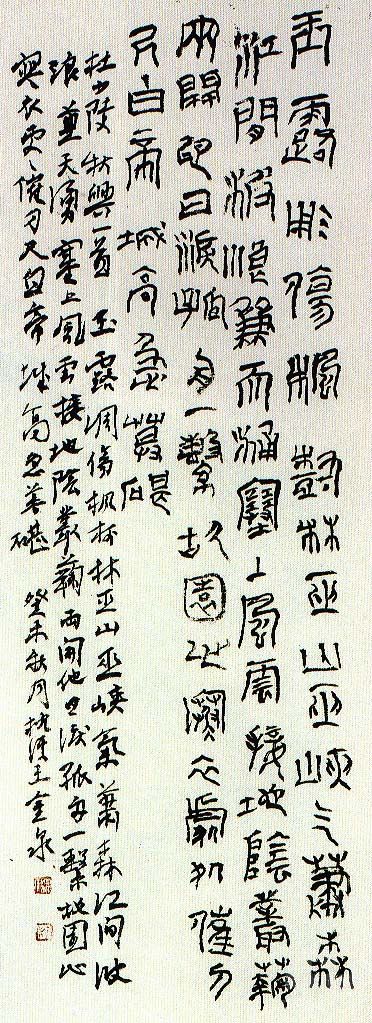 玉露凋傷楓樹林巫山巫峽气蕭森
江間波浪兼天涌塞上風雲接地陰叢菊
兩開他日淚孤舟一繫故園心寒衣處處催刀
尺白帝城高急暮砧
杜少陵秋興一首 玉露凋傷楓林巫山巫峽氣蕭森江間波
浪兼天湧塞上風雲接地陰叢菊兩開他日淚孤舟一繫故園心
寒衣處々催刀尺白帝城高急暮砧 癸未秋月王金泉